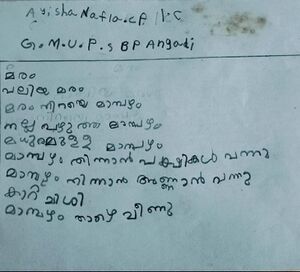 Ayisha Nafla.CP 1.C
G.M.U.P.S BP Angadi
മരം
വലിയ മരം
മരം നിറയെ മാമ്പഴം
നല്ല പഴുത്ത മാമ്പഴം
മധുരമുള്ള മാമ്പഴം
മാമ്പഴം തിന്നാൻ പക്ഷികൾ വന്നു
മാമ്പഴം തിന്നാൻ അണ്ണാൻ വന്നു
കാറ്റ് വീശി
മാമ്പഴം താഴെ വീണു